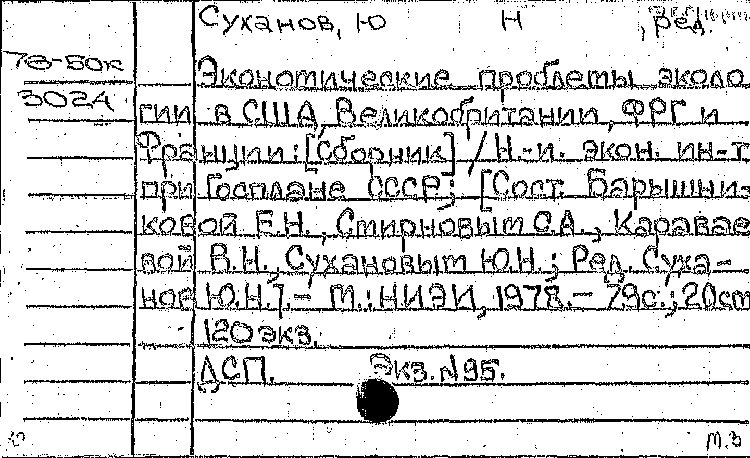 Суханов, Ю Н , ред.
78-50к
3024
Экономические проблемы эколо
гии в США, Великобритании, ФРГ и
Франции: [Сборник] / Н.-и. экон. ин-т
при Госплане СССР; [Сост. Барышни-
ковой Е.Н., Смирновым С.А., Каравае
вой В.Н., Сухановым Ю.Н.; Ред. Суха-
нов Ю.Н.]. - М.: НИЭИ, 1978. - 79с.; 20см
120 экз.
ДСП. Экз. N95.
м.з